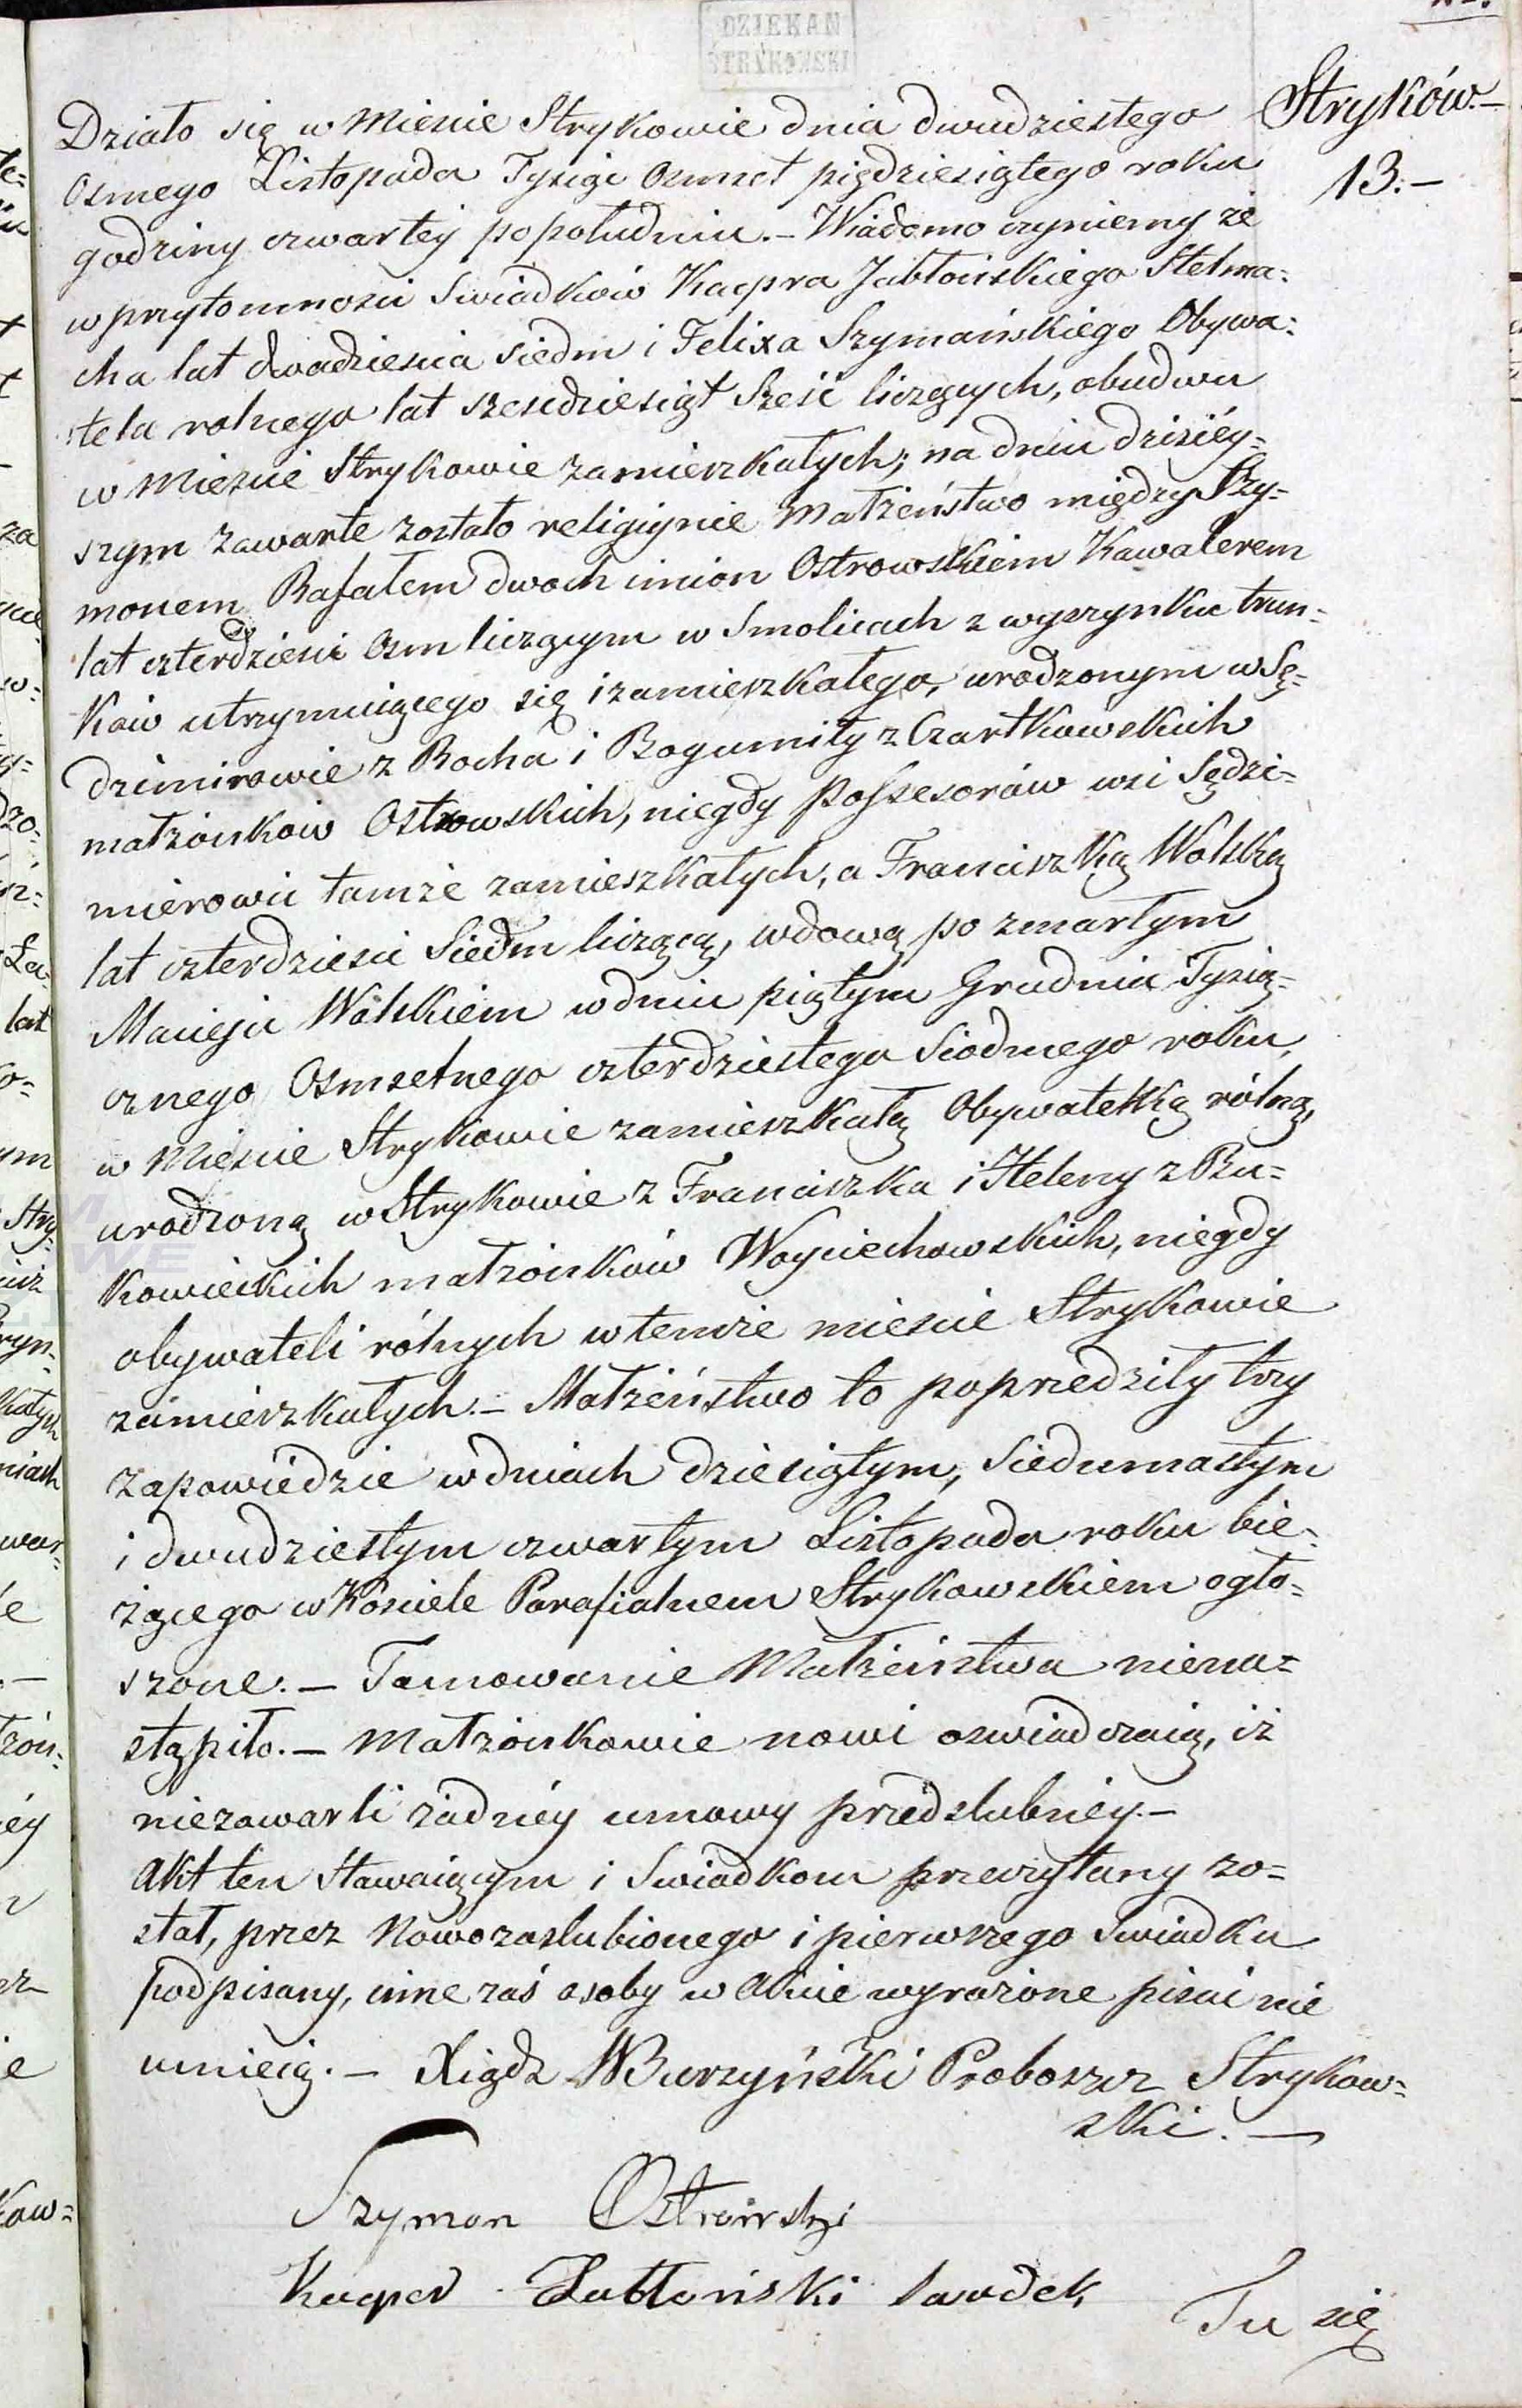 DZIEKAN
STRYKOWSKI
Stryków.–
13.–
Działo się w Mieście Strykowie dnia dwudziestego
Osmego Listopada Tysiąc Osmset pięćdziesiątego roku
godziny czwartey popołudniu.– Wiadomo czyniemy że
w przytomności Swiadków Kacpra Jabłońskiego Stelma=
cha lat dwadzieścia siedm i Felixa Szymańskiego Obywa=
tela rolnego lat sześćdziesiąt sześć liczących, obudwu
w Mieście Strykowie zamieszkałych; na dniu dzisiéy=
szym zawarte zostało religijnie Małżeństwo między Szy=
monem Rafałem dwoch imion Ostrowskiem Kawalerem
lat czterdzieści Osm liczącym w Smolicach z wyszynku trun=
ków utrzymującego się i zamieszkałego, urodzonym w Sę=
dzimirowie z Rocha i Bogumiły z Czartkowskich
małżonków Ostrowskich, niegdy Possesorów wsi Sędzi=
mierowie tamże zamieszkałych, a Franciszką Wolską
lat czterdzieści Siedm liczącą, wdową po zmarłym
Macieju Wolskiem w dniu piątym Grudnia Tysią=
cznego Osmsetnego czterdziestego Siodmego roku,
w Mieście Strykowie zamieszkałą Obywatelką rólną,
urodzoną w Strykowie z Franciszka i Heleny z Bu=
kowieckich małżonków Woyciechowskich, niegdy
obywateli rólnych w temże mieście Strykowie
zamieszkałych.– Małżeństwo to poprzedziły trzy
zapowiédzie w dniach dziesiątym, Siedmnastym
i dwudziestym czwartym Listopada roku bie=
żącego w Kościele Parafialnem Strykowskiem ogło=
szone.– Tamowanie Małżeństwa niena=
stąpiło.– Małżonkowie nowi oswiadczaią, iż
niezawarli żadnéy umowy przedslubnéy.–
Akt ten Stawaiącym i Swiadkom przeczytany zo=
stał, przez Nowozaslubionego i pierwszego Swiadka
podpisany, inne zaś osoby w akcie wyrażone pisać nie
umieią.– Xiądz WBurzyński Proboszcz Strykow=
ski.–
Szymon Ostrowski
Kacper Jabłoński
Tu się